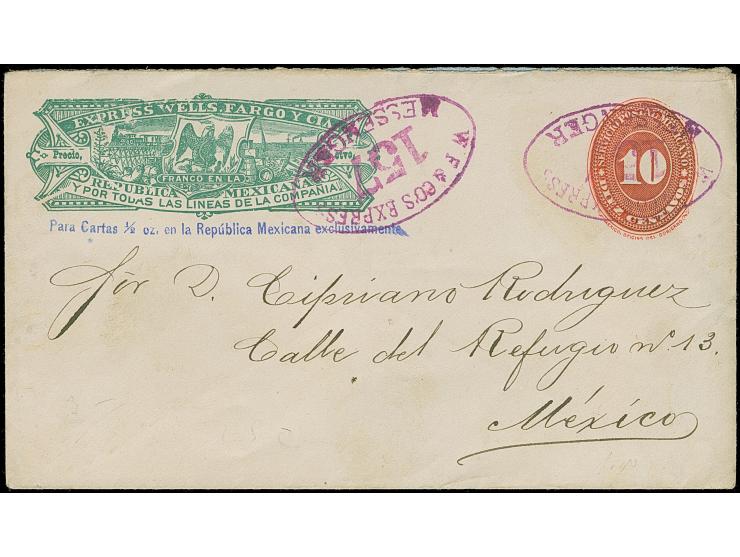 EXPRESS WELLS, FARGO Y CIA.
Precio,
FRANCO EN LA
REPUBLICA MEXICANA
Y POR TODAS LAS LINEAS DE LA COMPAÑIA
Para Cartas ½ oz. en la República Mexicana exclusivamente
W. F. & CO'S EXPRESS
157
MESSENGER
SERVICIO POSTAL MEXICANO
10
DIEZ CENTAVOS
Sôr D. Cipriano Rodriguez
Calle del Refugio nº 13.
México